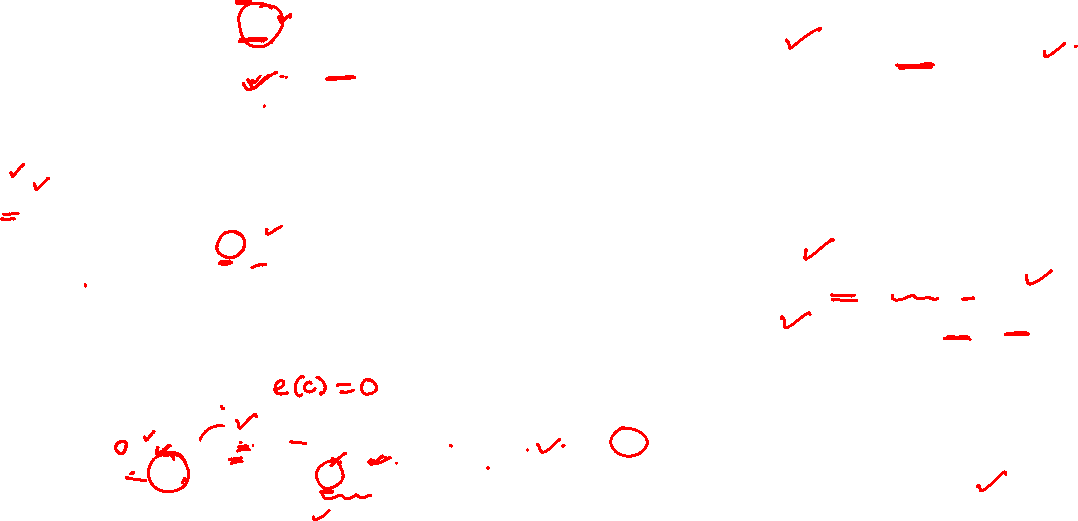 e(c) = 0
0